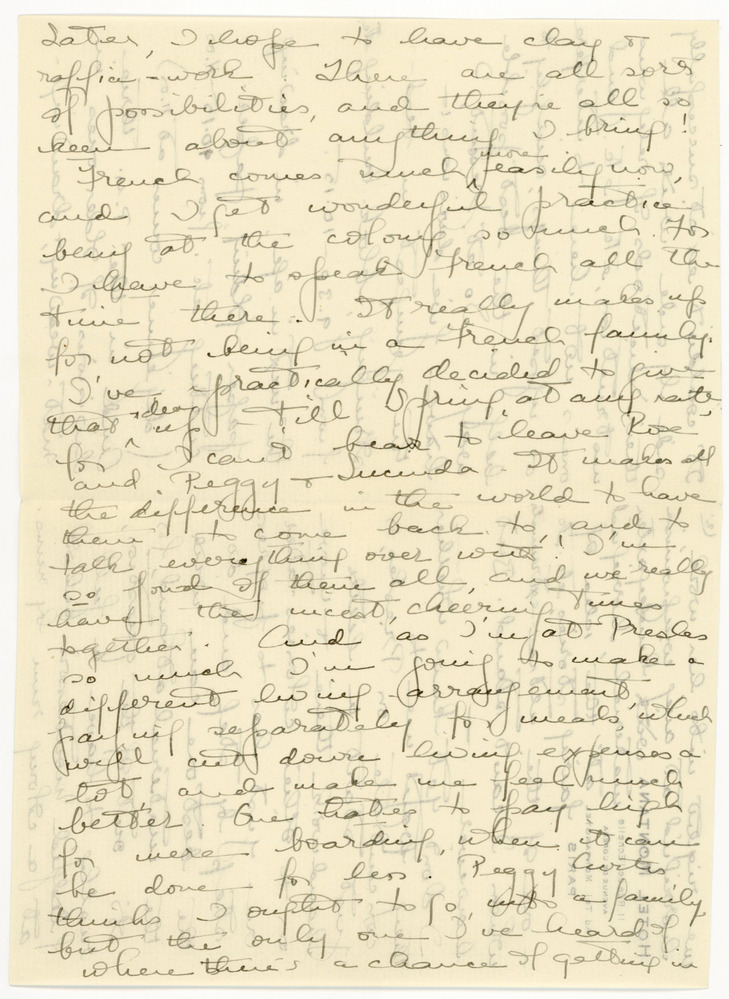 Later, I hope to have clay &
raffia-work. There are all sorts
of possibilities, and they're all so
keen about anything I bring!
French comes much more easily now,
and I get wonderful practice
being at the colony so much. For
I have to speak French all the
time there. It really makes up
for not being in a French family.
I've practically decided to give
that idea up - till Spring, at any rate,
for I can't bear to leave Rose
and Peggy & Lucinda. It makes all
the difference in the world to have
them to come back to, and to
talk everything over with! I'm
so fond of them all, and we really
have the nicest, cheering times
together. And as I'm at Presles
so much I'm going to make a
different living arrangement,
paying separately for meals, which
will cut down living expenses a
lot, and make me feel much
better. One hates to pay high
for mere boarding, when it can
be done for less. Peggy Curtis
thinks I ought to go into a family
but the only one I've heard of
where there's a chance of getting in